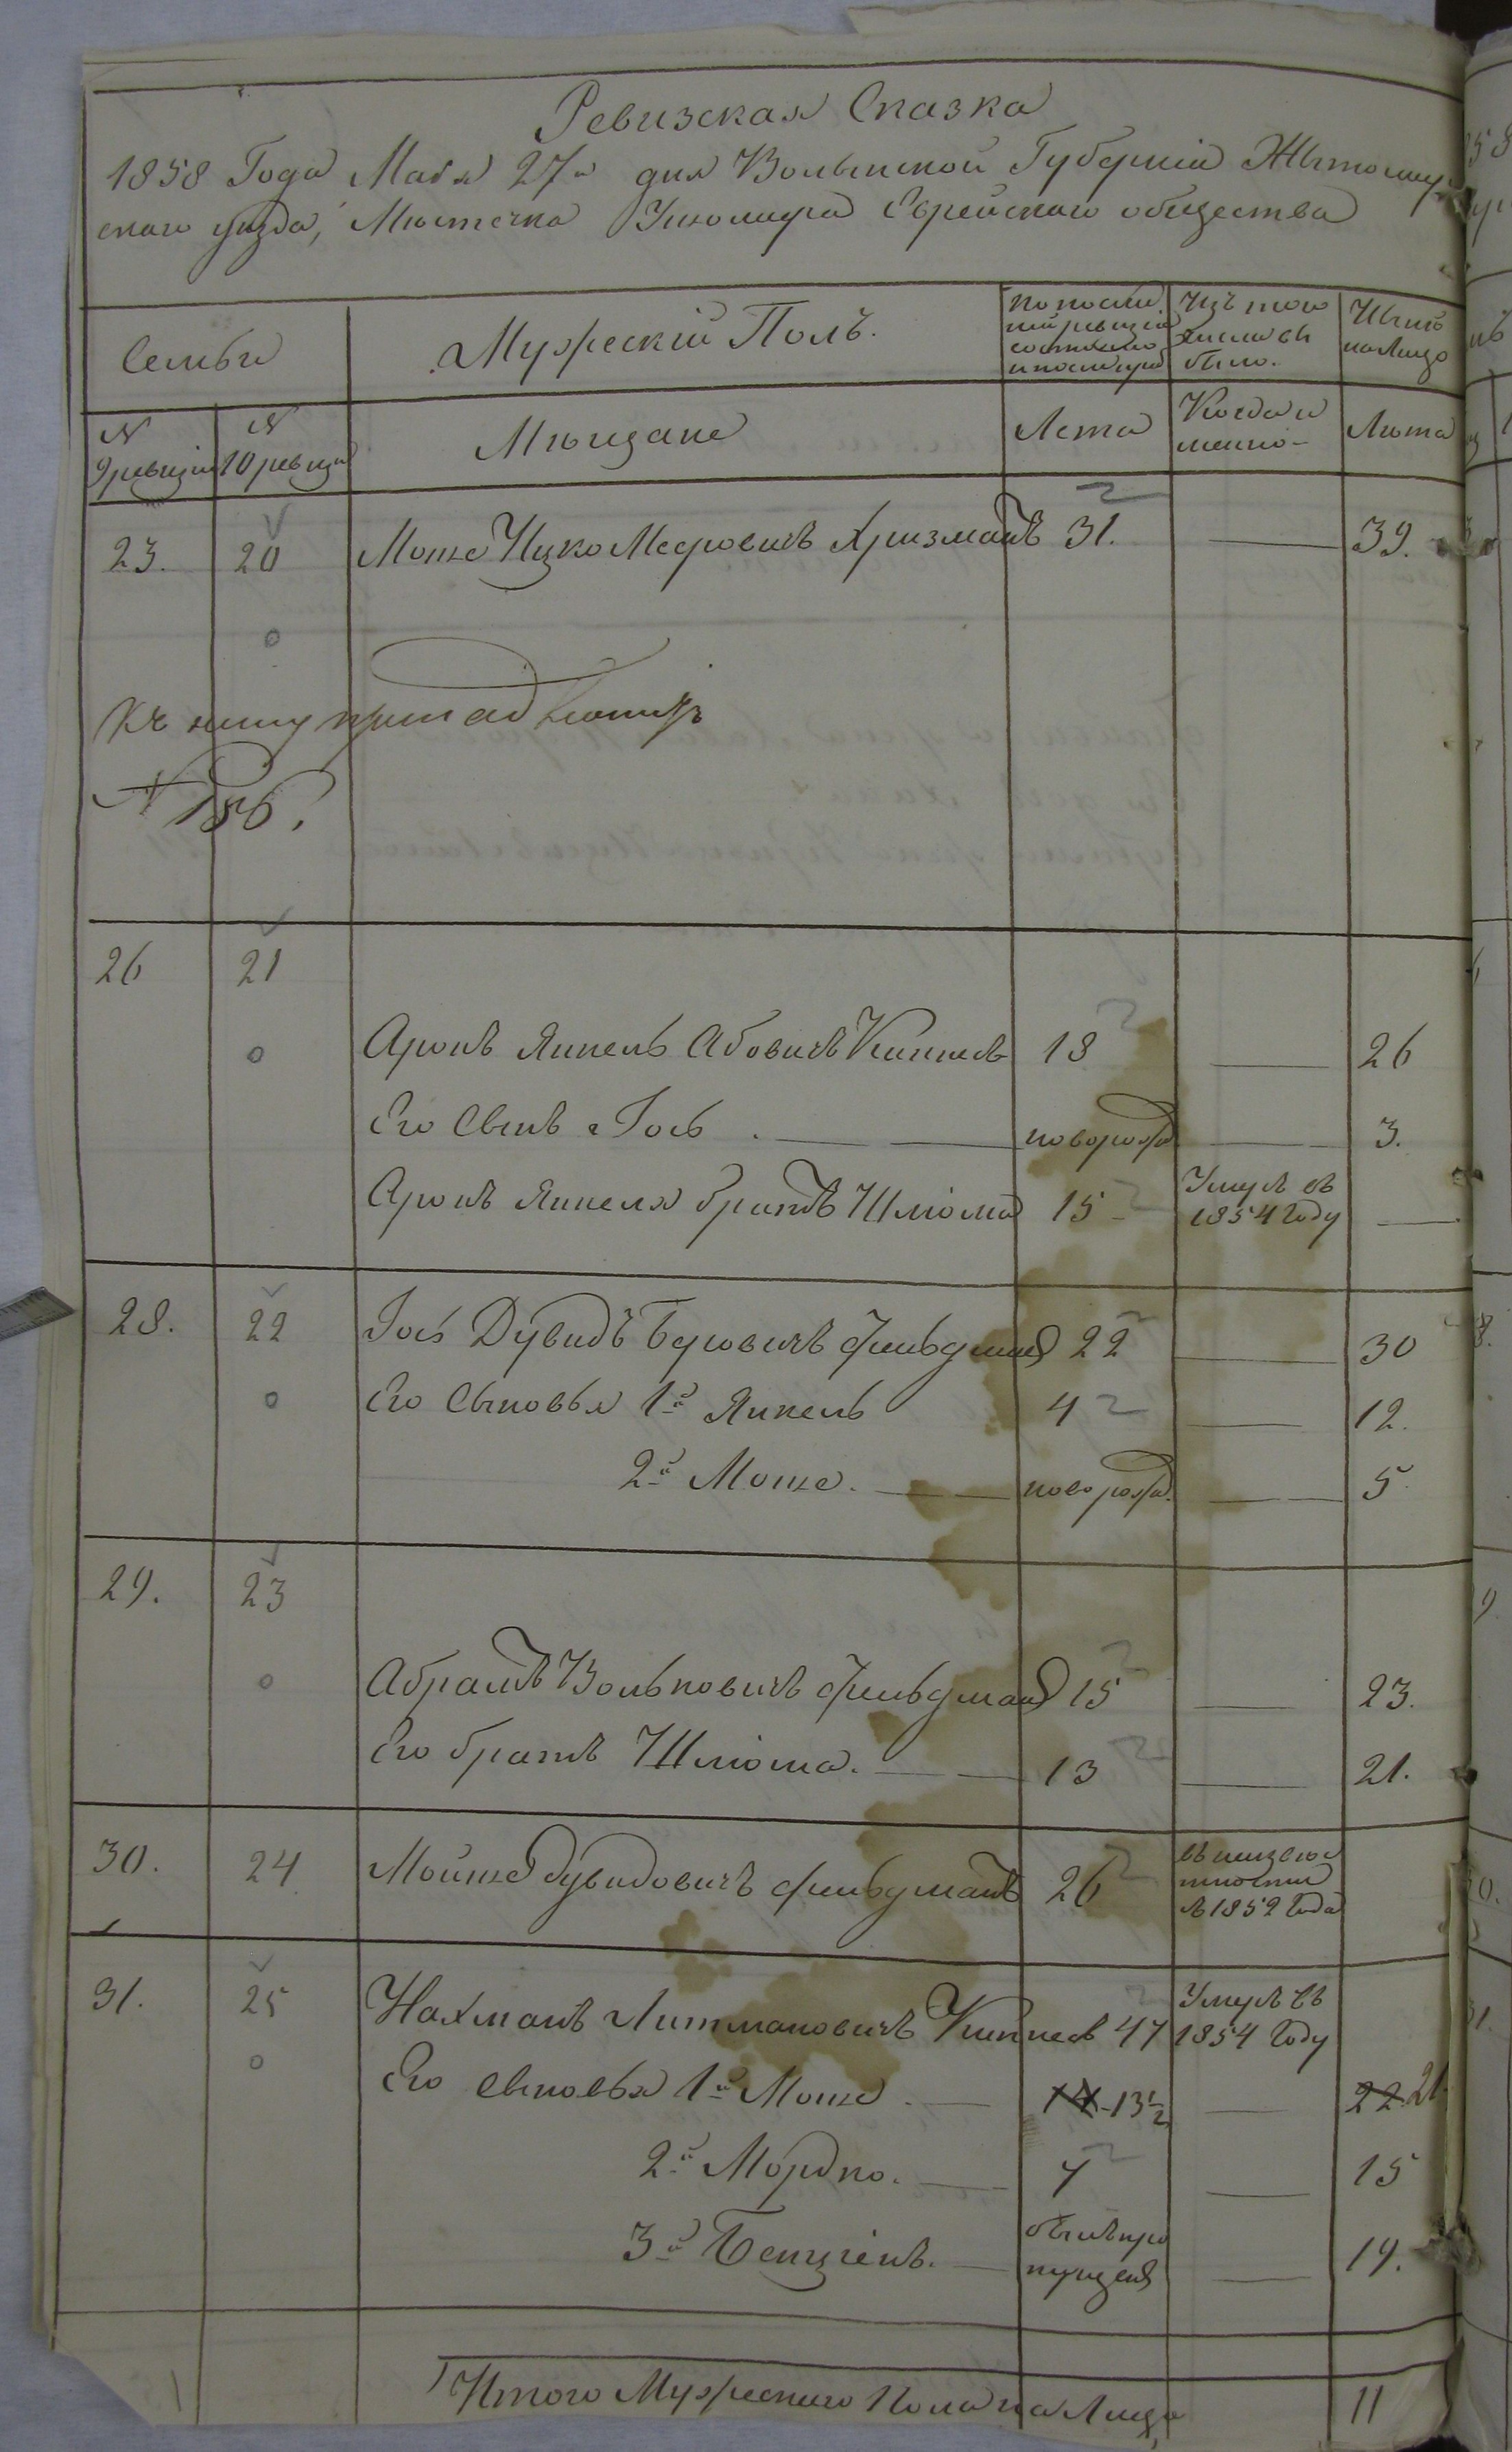 Ревизская Сказка
1858 Года Маія 27го дня Волынской Губерніи Житомир
скаго уезда, Мюстечка Ушомира Еврейскаго общества
Семьи
Мужескій Полъ.
По послѣд.
ней ревизіи
состояло
Изъ того
числа вы
было.
Нынѣ
на Лицо
N
9 ревизіи
N
10 ревизіи
Мѣщане
Лета
Когда и
менно-
Лѣта
23. 20 Мошко Ицко Мееровичъ Хризманъ 31. — 39.
Къ нему
N 186.
26 21
Аронъ Янкель Абовичъ 18 — 26
Его Сынъ Іось — новорожд — 3.
Аронъ Янкеля братъ Шліома 15 Умеръ въ
1854 Году —
28. 22 Іось Дувидъ Беровичъ Фельдманъ 22 — 30
Его Сыновья 1й Янкель 4 — 12.
2й Мошко. — новорожд. — 5
29. 23
Абрамъ Вольковичъ Фельдманъ 15 — 23.
Его братъ Шліома. — 13 — 21.
30. 24 Мойше Дувидовичъ Фельдманъ 26 въ неизвѣс
тности
съ 1852 Года
31. 25 Нахманъ Литмановичъ 47 Умеръ въ
1854 Году
Его сыновья 1й Мошко — 14 13½ — 22 21.
2й Мордко. — 7 — 15
3й Бенціенъ. — былъ про
пущенъ — 19.
Итого Мужескаго Пола на Лицо 11